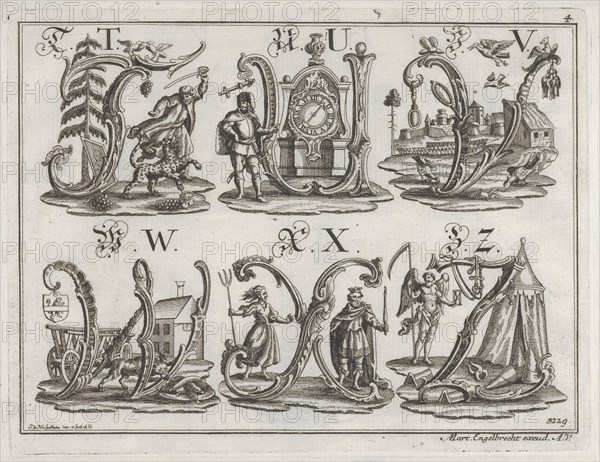 4.
T T. U. U. V. V.
W. W. X. X. Z. Z.
3229
Mart. Engelbrecht excud. A.V.
PHOTO12